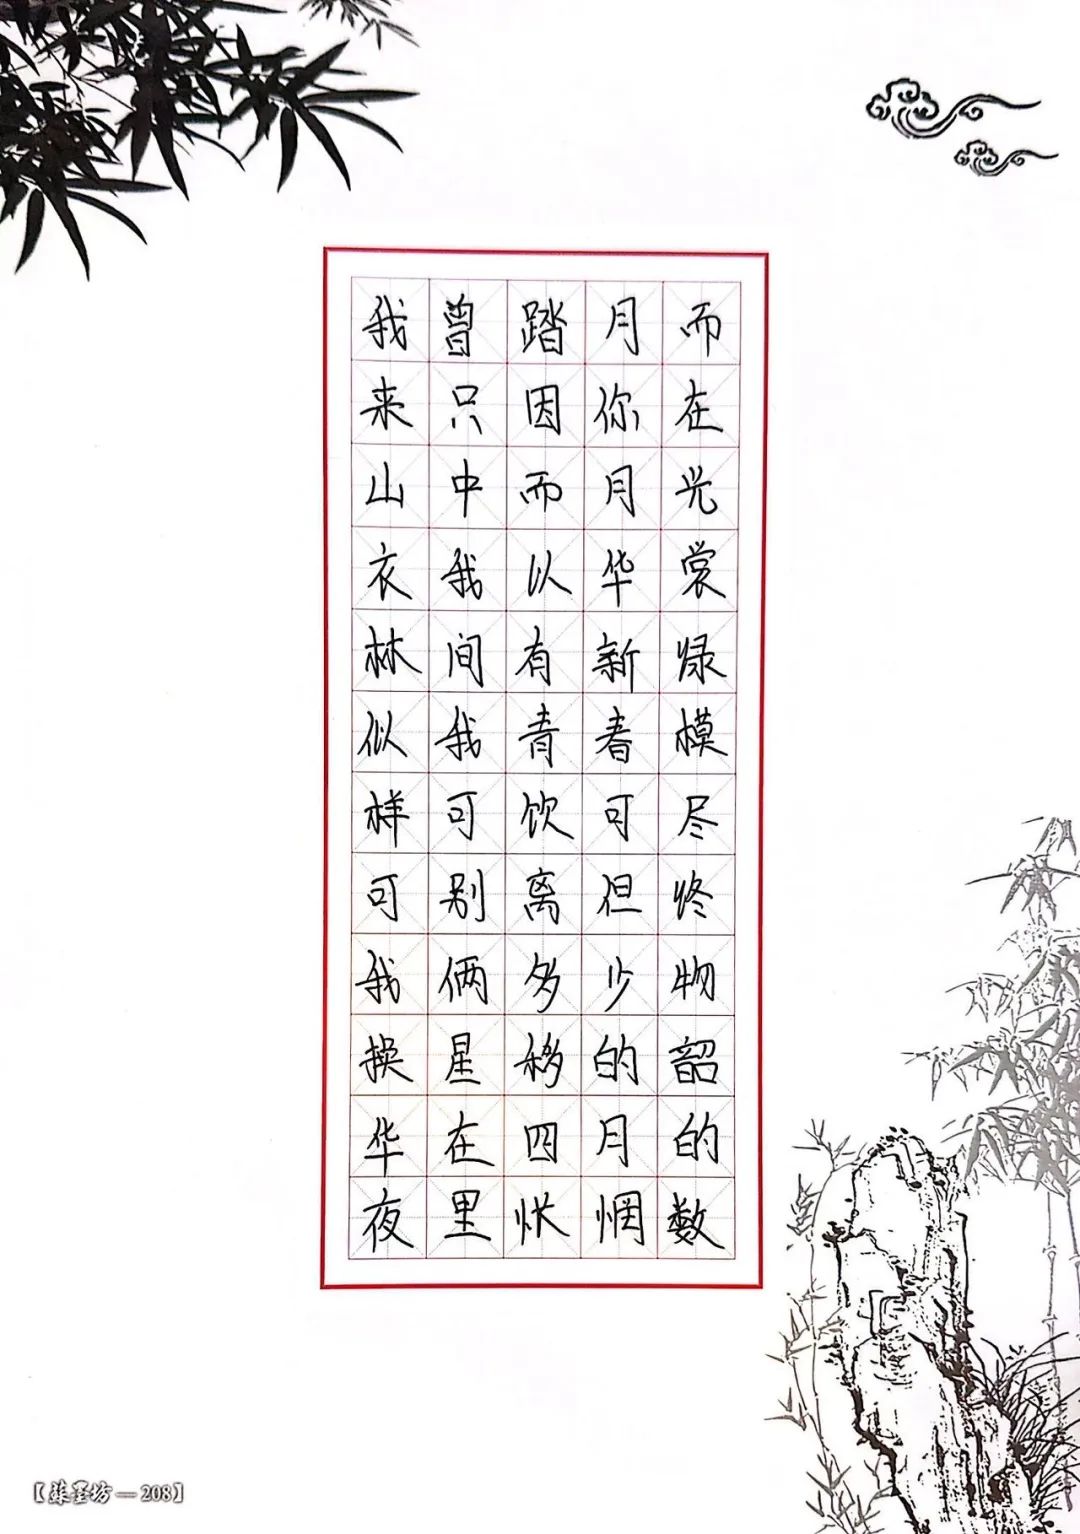 我曾踏月而
来只因你在
山中而月光
衣我以华裳
林间有新绿
似我青春模
样可饮可尽
可别离但终
我俩多少物
换星移的韶
华在四月的
夜里怅惘数
【蘇墨坊—208】